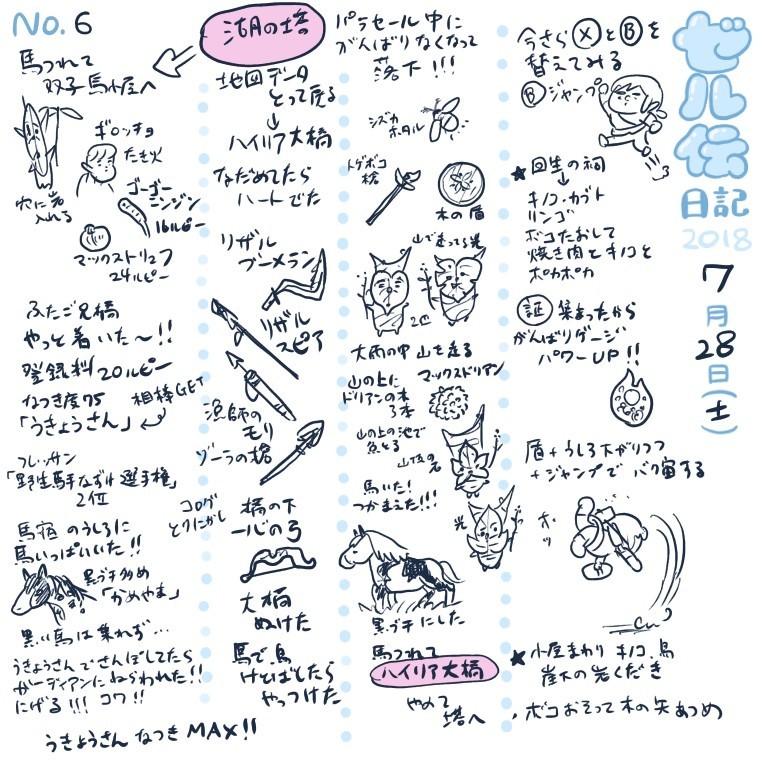 ゼル伝
日記
2018
7
月
28
日
(土)
No.6
今さら Ⓧ と Ⓑ を
替えてみる
Ⓑ ジャンプ
★ 回生の祠
↓
キノコ・カブト
リンゴ
ボコたおして
焼き肉とキノコと
ポカポカ
証 集まったから
がんばりゲージ
パワーUP!!
盾+うしろ下がりつつ
+ジャンプで バク宙する
ホッ
★ 小屋まわり キノコ、鳥
崖下の岩くだき
ボコおそって木の矢あつめ
パラセール中に
がんばりなくなって
落下!!!
シズカホタル
トゲボコ槍
木の盾
山で走ってる光
2匹
大雨の中 山を走る
山の上に
ドリアンの木
3本
マックスドリアン
山の上の池で
魚とる
山頂の光
馬いた!
つかまえた!!!
光
黒ブチにした
馬つれて
ハイリア大橋
やめて
塔へ
湖の塔
地図データ
とって戻る
↓
ハイリア大橋
なだめてたら
ハートでた
リザル
ブーメラン
リザル
スピア
漁師の
モリ
ゾーラの槍
コログ
とりにがし
橋の下
一心の弓
大橋
ぬけた
馬で、鳥
けとばしたら
やっつけた
馬つれて
双子馬小屋へ
ギロンチョ
たき火
穴に岩
入れる
ゴーゴー
ニンジン
16ルピー
マックストリュフ
24ルピー
ふたご兄橋
やっと着いた〜!!
登録料20ルピー
なつき度75
相棒GET
「うきょうさん」
フレッサン
「野生馬手なずけ選手権」
2位
馬宿のうしろに
馬いっぱいいた!!
黒ブチ多め
「かめやま」
黒い馬は乗れず…
うきょうさんでさんぽしてたら
ガーディアンにねらわれた!!
にげる!!! コワ!!
うきょうさん なつきMAX!!